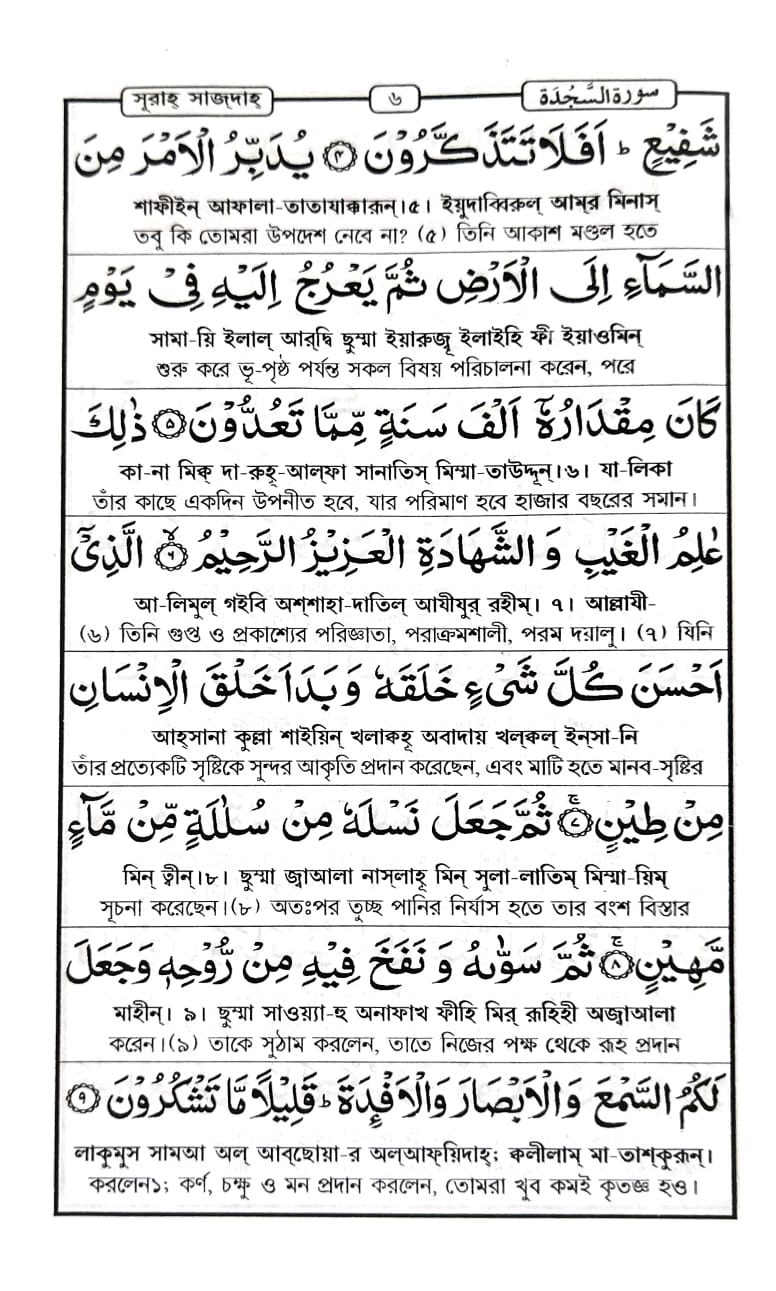 সূরাহ্ সাজ্‌দাহ্ ৬ سورة السَّجْدَة
شَفِيْعٍ ؕ اَفَلَا تَتَذَكَّرُوْنَ ﴿۴﴾ يُدَبِّرُ الْاَمْرَ مِنَ
শাফীইন্ আফালা-তাতাযাক্কারূন্।৫। ইয়ুদাব্বিরুল্ আম্‌র মিনাস্
তবু কি তোমরা উপদেশ নেবে না? (৫) তিনি আকাশ মণ্ডল হতে
السَّمَآءِ اِلَى الْاَرْضِ ثُمَّ يَعْرُجُ اِلَيْهِ فِىْ يَوْمٍ
সামা-য়ি ইলাল্ আর্‌দ্বি ছুম্মা ইয়ারুজ্বু ইলাইহি ফী ইয়াওমিন্
শুরু করে ভূ-পৃষ্ঠ পর্যন্ত সকল বিষয় পরিচালনা করেন, পরে
كَانَ مِقْدَارُهٗۤ اَلْفَ سَنَةٍ مِّمَّا تَعُدُّوْنَ ﴿۵﴾ ذٰلِكَ
কা-না মিক্ব দা-রুহূ-আল্‌ফা সানাতিস্ মিম্মা-তাউদ্দূন্।৬। যা-লিকা
তাঁর কাছে একদিন উপনীত হবে, যার পরিমাণ হবে হাজার বছরের সমান।
عٰلِمُ الْغَيْبِ وَالشَّهَادَةِ الْعَزِيْزُ الرَّحِيْمُ ﴿۶﴾ۙ الَّذِىْۤ
আ-লিমুল্ গইবি অশ্‌শাহা-দাতিল্ আযীযুর্ রহীম্। ৭। আল্লাযী-
(৬) তিনি গুপ্ত ও প্রকাশ্যের পরিজ্ঞাতা, পরাক্রমশালী, পরম দয়ালু। (৭) যিনি
اَحْسَنَ كُلَّ شَىْءٍ خَلَقَهٗ وَبَدَاَ خَلْقَ الْاِنْسَانِ
আহ্‌সানা কুল্লা শাইয়িন্ খলাক্বহূ অবাদায় খল্‌ক্বল্ ইন্‌সা-নি
তাঁর প্রত্যেকটি সৃষ্টিকে সুন্দর আকৃতি প্রদান করেছেন, এবং মাটি হতে মানব-সৃষ্টির
مِنْ طِيْنٍ ﴿۷﴾ۚ ثُمَّ جَعَلَ نَسْلَهٗ مِنْ سُلٰلَةٍ مِّنْ مَّآءٍ
মিন্ ত্বীন্।৮। ছুম্মা জ্বাআলা নাস্‌লাহূ মিন্ সুলা-লাতিম্ মিম্মা-য়িম্
সূচনা করেছেন।(৮) অতঃপর তুচ্ছ পানির নির্যাস হতে তার বংশ বিস্তার
مَّهِيْنٍ ﴿۸﴾ۚ ثُمَّ سَوّٰىهُ وَنَفَخَ فِيْهِ مِنْ رُّوْحِهٖ وَجَعَلَ
মাহীন্। ৯। ছুম্মা সাওয়্যা-হু অনাফাখ ফীহি মির্ রূহিহী অজ্বাআলা
করেন।(৯) তাকে সুঠাম করলেন, তাতে নিজের পক্ষ থেকে রূহ প্রদান
لَكُمُ السَّمْعَ وَالْاَبْصَارَ وَالْاَفْـِٕدَةَ ؕ قَلِيْلًا مَّا تَشْكُرُوْنَ ﴿۹﴾
লাকুমুস সামআ অল্ আব্‌ছোয়া-র অল্‌আফ্‌য়িদাহ্; ক্বলীলাম্ মা-তাশ্‌কুরূন্।
করলেন১; কর্ণ, চক্ষু ও মন প্রদান করলেন, তোমরা খুব কমই কৃতজ্ঞ হও।